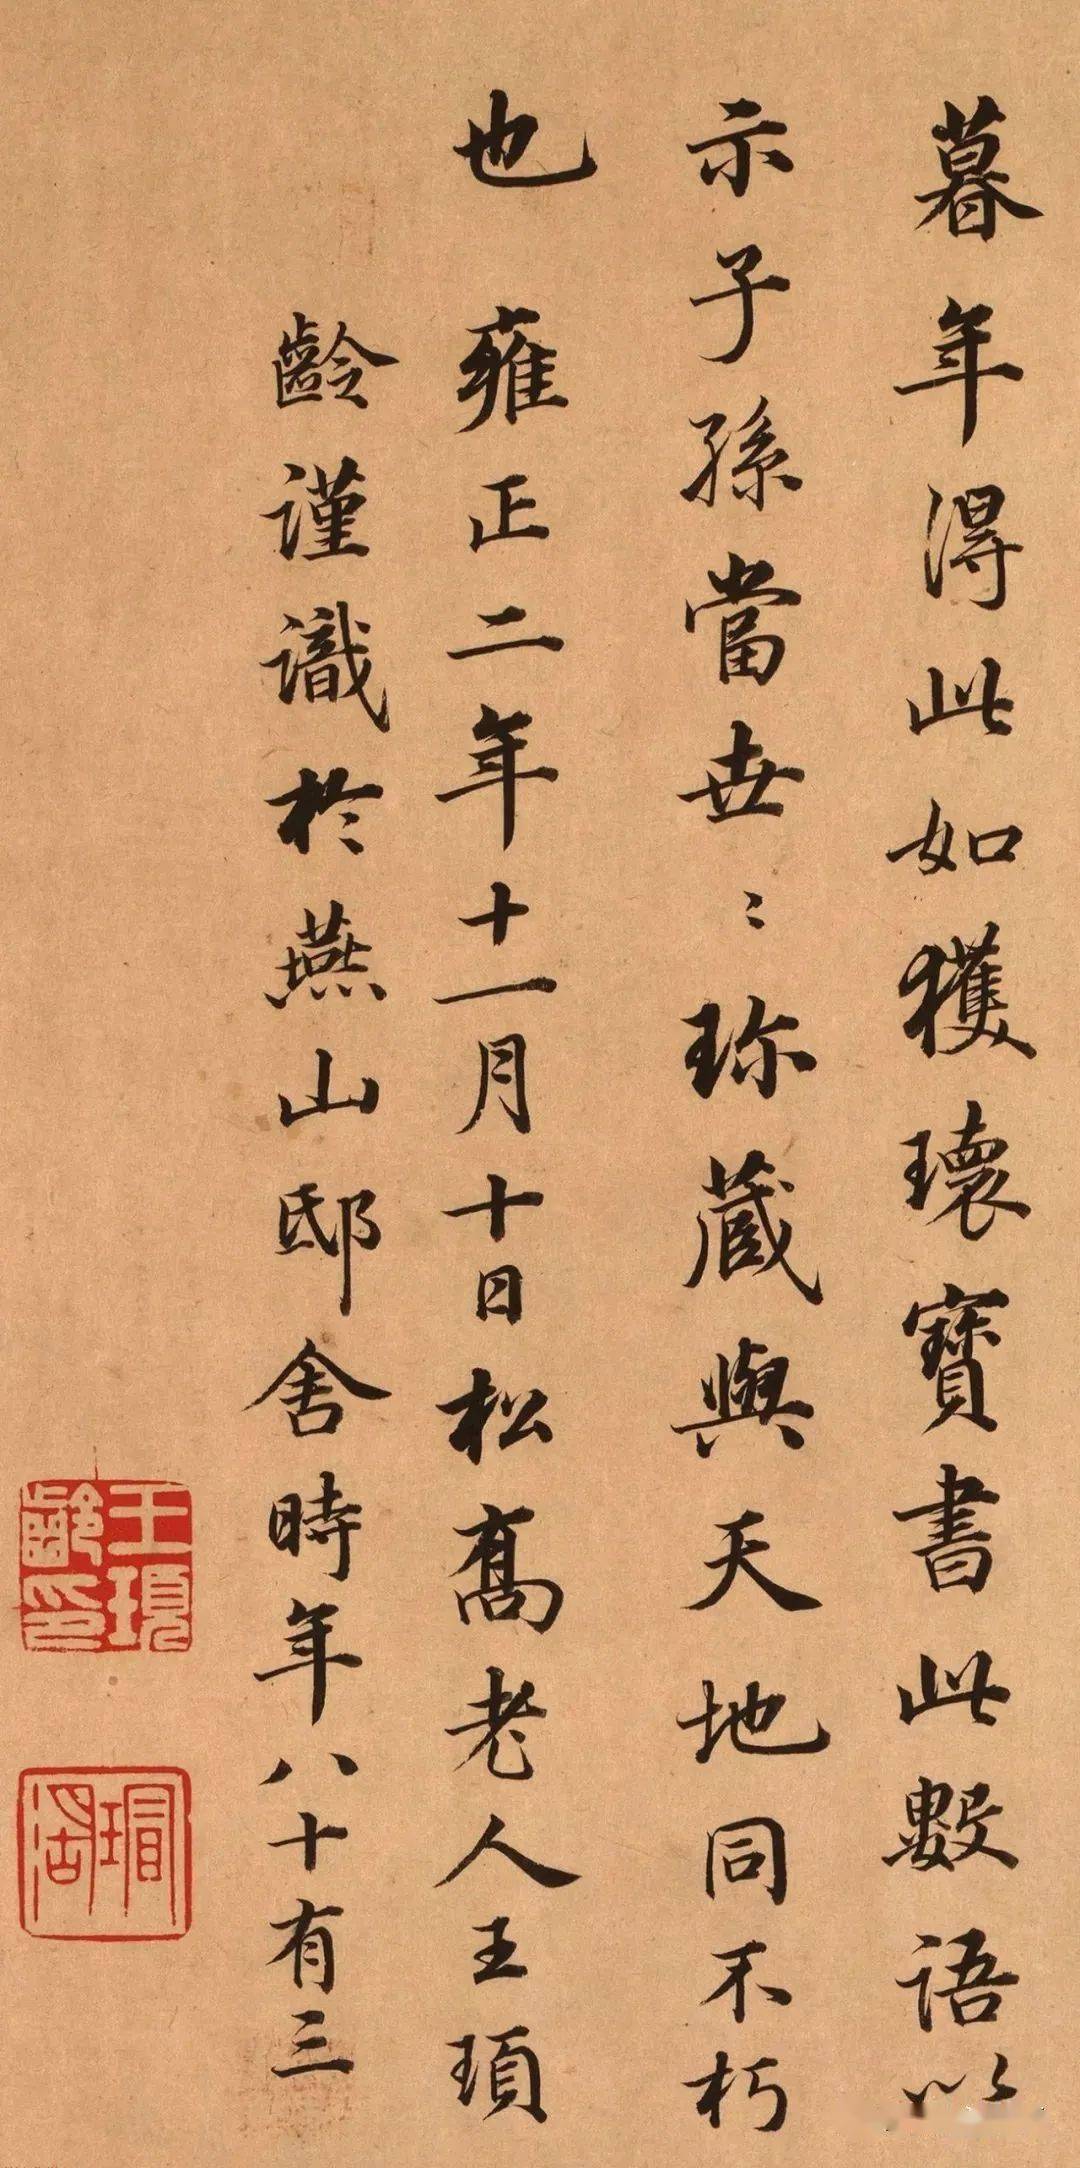 暮年得此如獲瓌寶書此數語以
示子孫當世〻珎藏與天地同不朽
也 雍正二年十一月十日松喬老人王頊
齡謹識於燕山邸舍時年八十有三
王頊齡印
瑁湖